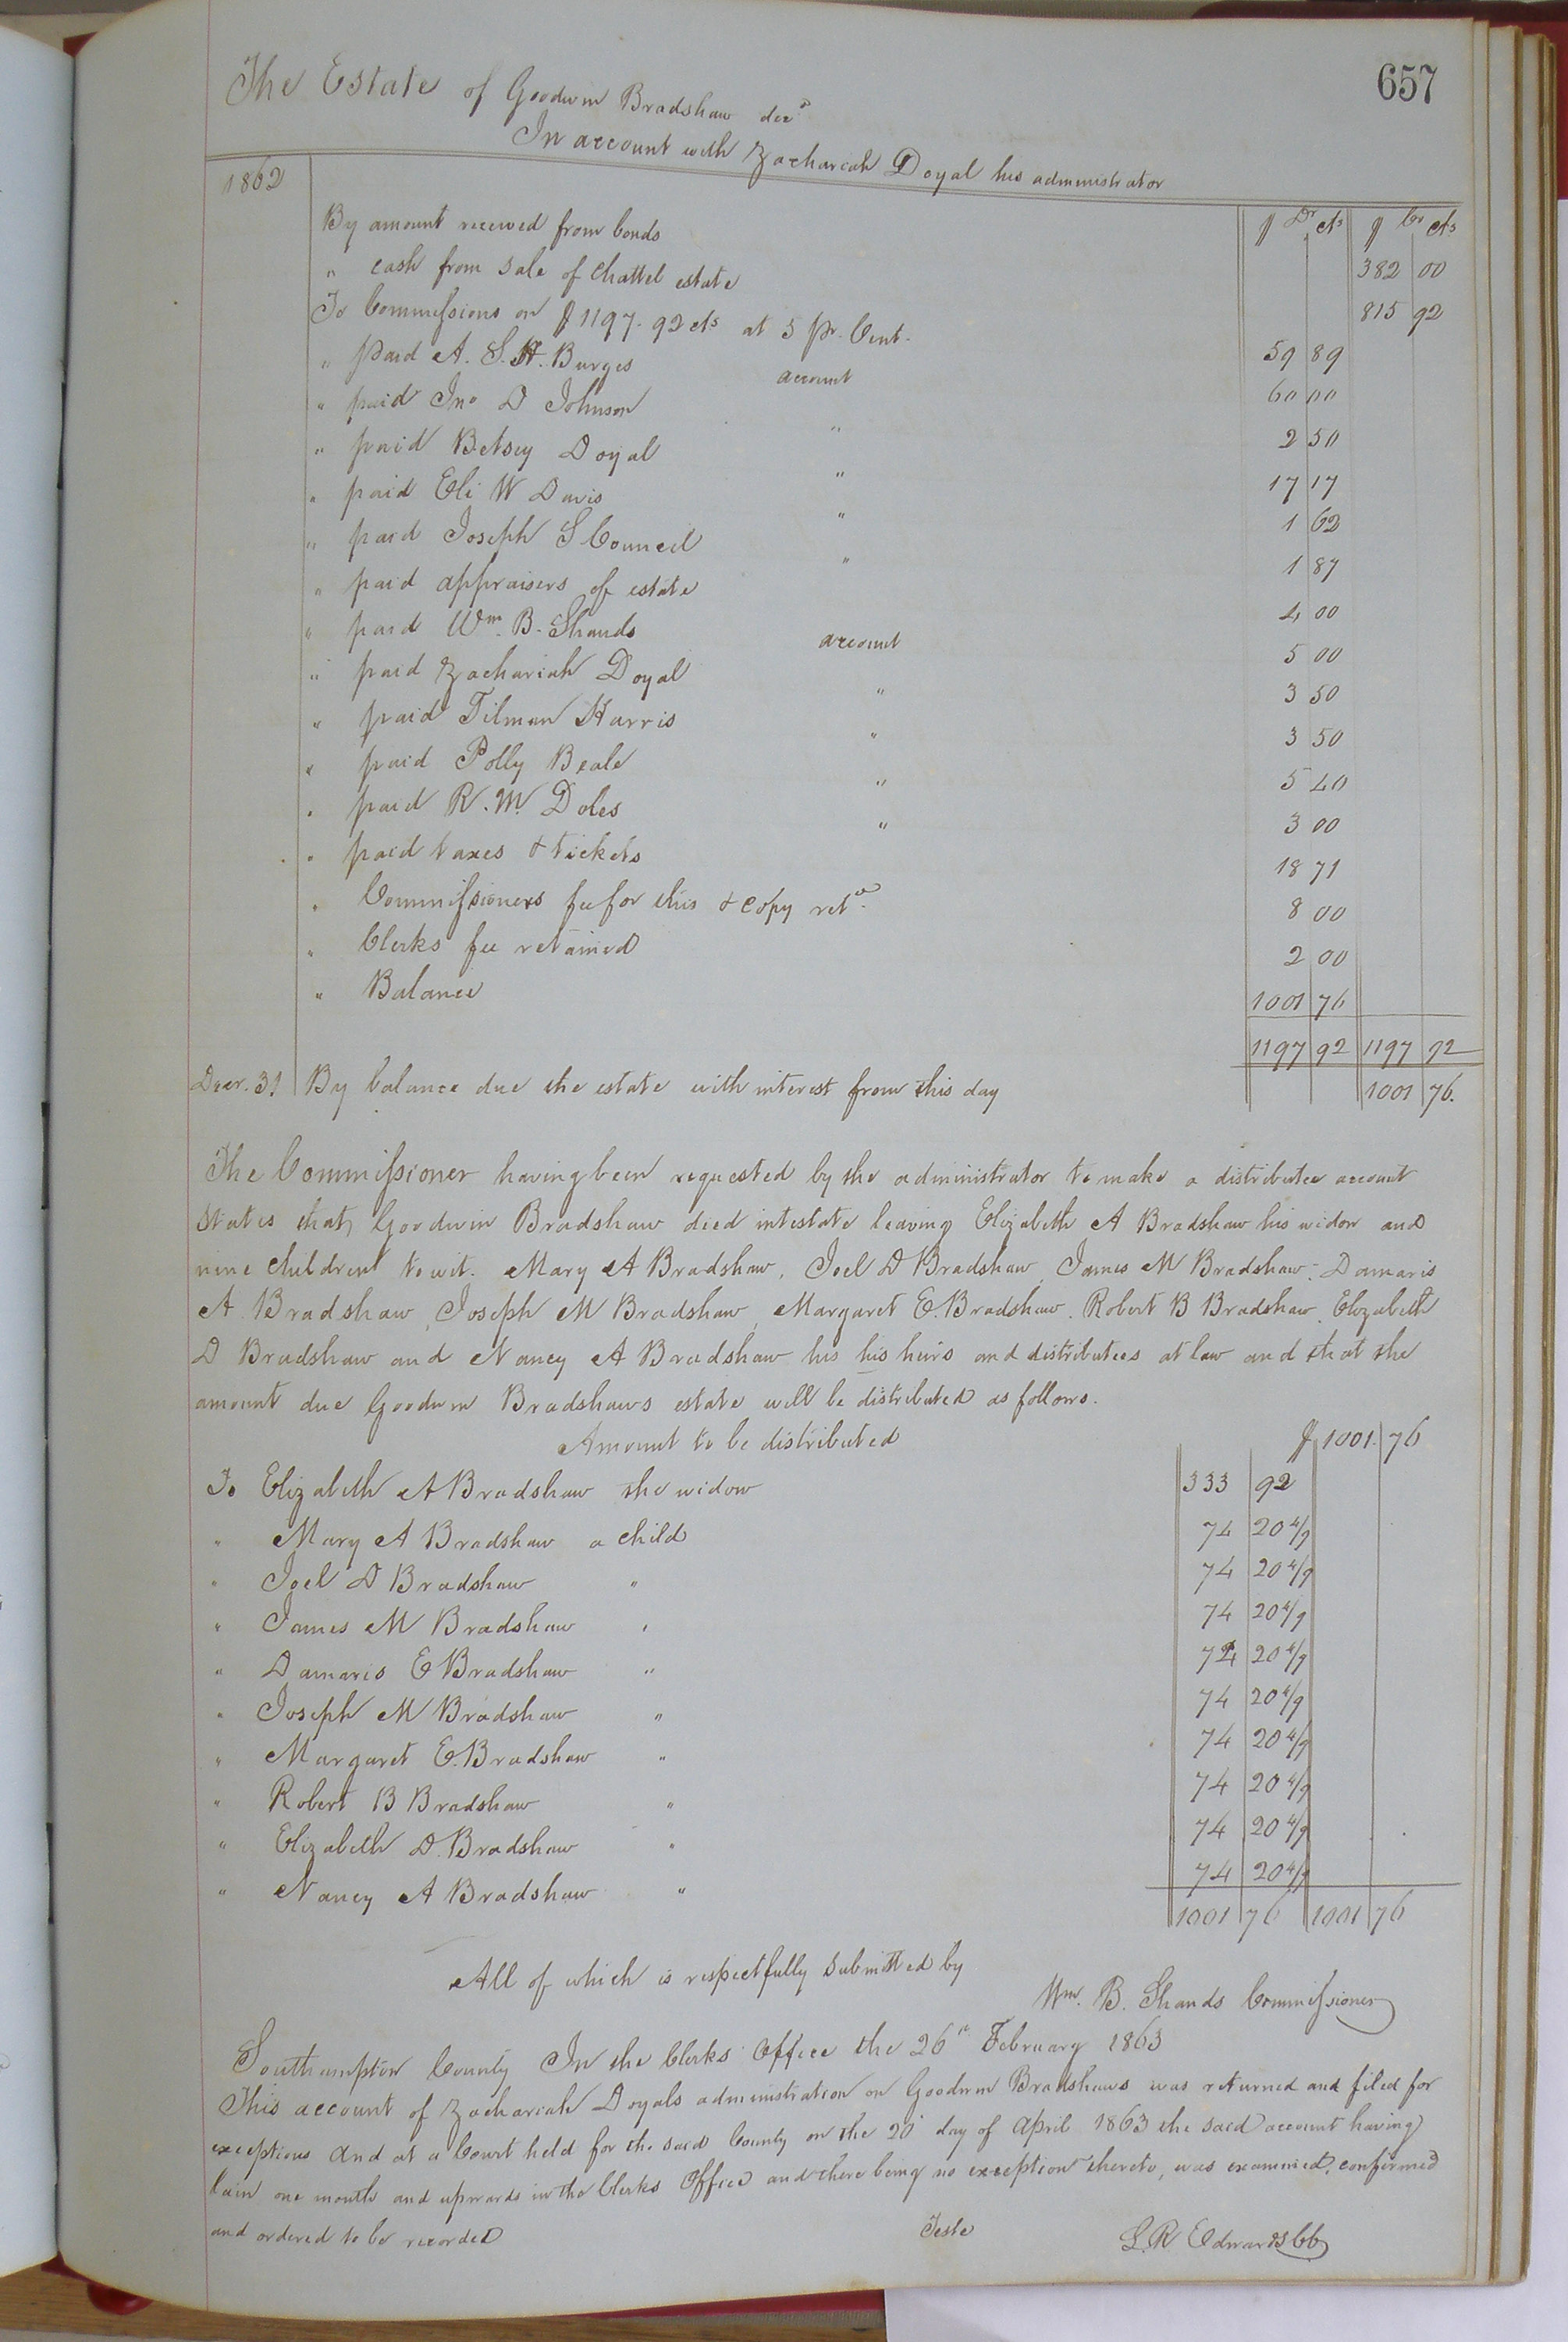 657
The Estate of Goodwin Bradshaw decd
In account with Zachariah Doyal his administrator
1862
$ Dr cts $ Cr cts
By amount received from bonds 382 00
" cash from sale of Chattel estate 815 92
To Commissions on $1197.92 cts at 5 pr. Cent. 59 89
" paid A. S. H. Burges account 60 00
" paid Jno D Johnson " 2 50
" paid Betsey Doyal " 17 17
" paid Eli W Davis " 1 62
" paid Joseph S Council " 1 87
" paid appraisers of estate 4 00
" paid Wm. B. Shands account 5 00
" paid Zachariah Doyal " 3 50
" paid Tilman Harris " 3 50
" paid Polly Beale " 5 40
" paid R. M. Doles " 3 00
" paid taxes & tickets 18 71
" Commissioners fee for this & copy retd. 8 00
" Clerks fee retained 2 00
" Balance 1001 76
1197 92 1197 92
Decr. 31 By balance due the estate with interest from this day 1001 76.
The Commissioner having been requested by the administrator to make a distributee account
States that Goodwin Bradshaw died intestate leaving Elizabeth A Bradshaw his widow and
nine children to wit. Mary A Bradshaw, Joel D Bradshaw, James M Bradshaw, Damaris
A Bradshaw, Joseph M Bradshaw, Margaret E. Bradshaw, Robert B Bradshaw, Elizabeth
D Bradshaw and Nancy A Bradshaw his his heirs and distributees at law and that the
amount due Goodwin Bradshaws estate will be distributed as follows.
Amount to be distributed $ 1001. 76
To Elizabeth A Bradshaw the widow 333 92
" Mary A Bradshaw a child 74 20 4/9
" Joel D Bradshaw " 74 20 4/9
" James M Bradshaw " 74 20 4/9
" Damaris E Bradshaw " 74 20 4/9
" Joseph M Bradshaw " 74 20 4/9
" Margaret E. Bradshaw " 74 20 4/9
" Robert B Bradshaw " 74 20 4/9
" Elizabeth D. Bradshaw " 74 20 4/9
" Nancy A Bradshaw " 74 20 4/9
1001 76 1001 76
All of which is respectfully submitted by
Wm. B. Shands Commissioner
Southampton County In the Clerks Office the 26th February 1863
This account of Zachariah Doyals administration on Goodwin Bradshaws was returned and filed for
exceptions and at a Court held for the said County on the 20 day of April 1863 the said account having
lain one month and upwards in the Clerks Office and there being no exception thereto, was examined, confirmed
and ordered to be recorded
Teste
L. R Edwards CC